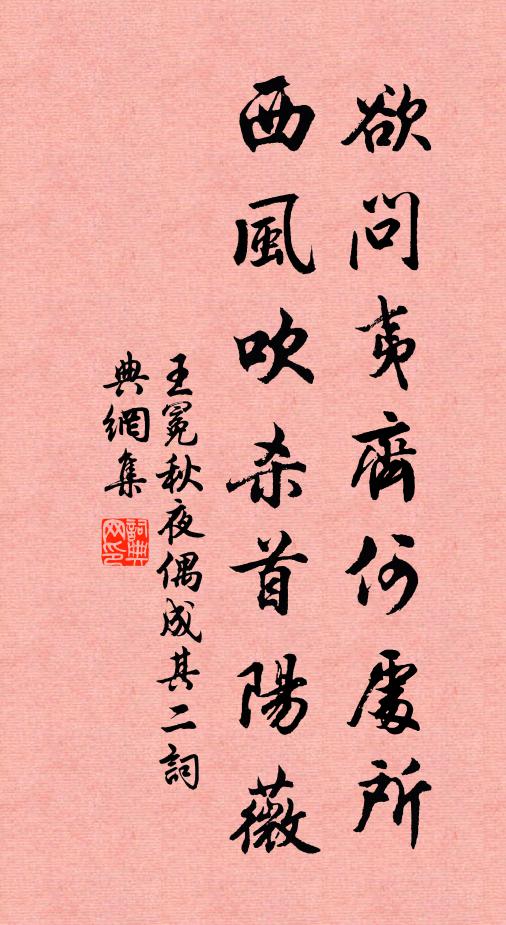 欲問夷齊何處所
西風吹杀首陽薇
王冕秋夜偶成其二詞
典網集
詞典網印